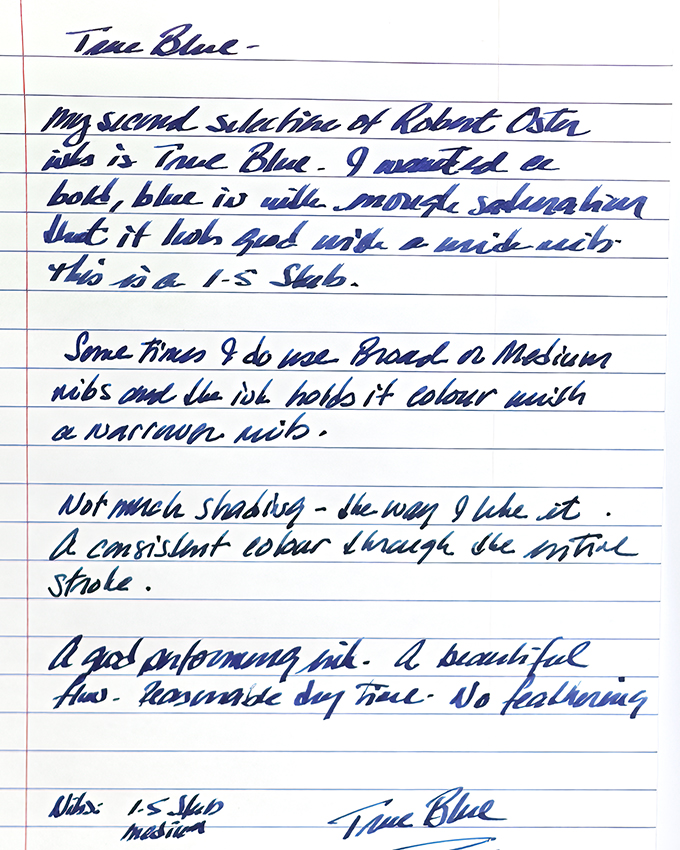 True Blue -
My second selection of Robert Oster
inks is True Blue. I wanted a
bold, blue in with enough saturation
that it looks good with a wide nib.
This is a 1.5 Stub.
Some times I do use Broad or Medium
nibs and the ink holds it colour with
a narrower nib.
Not much shading - the way I like it.
A consistent colour through the entire
stroke.
A good performing ink. A beautiful
flow. Reasonable dry time. No feathering
Nibs: 1.5 Stub
medium
True Blue